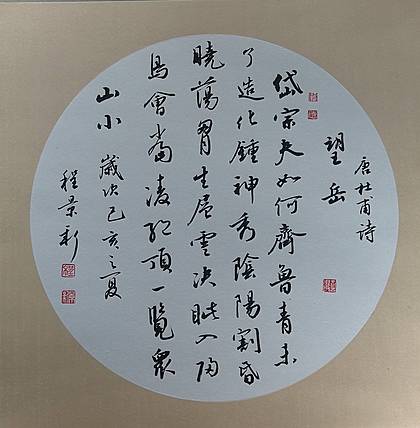 唐杜甫詩
望岳
岱宗夫如何齊魯青未
了造化鍾神秀陰陽割昏
曉蕩胷生層雲決眦入歸
鳥會當凌絕頂一覽衆
山小
歲次己亥之夏
程景新